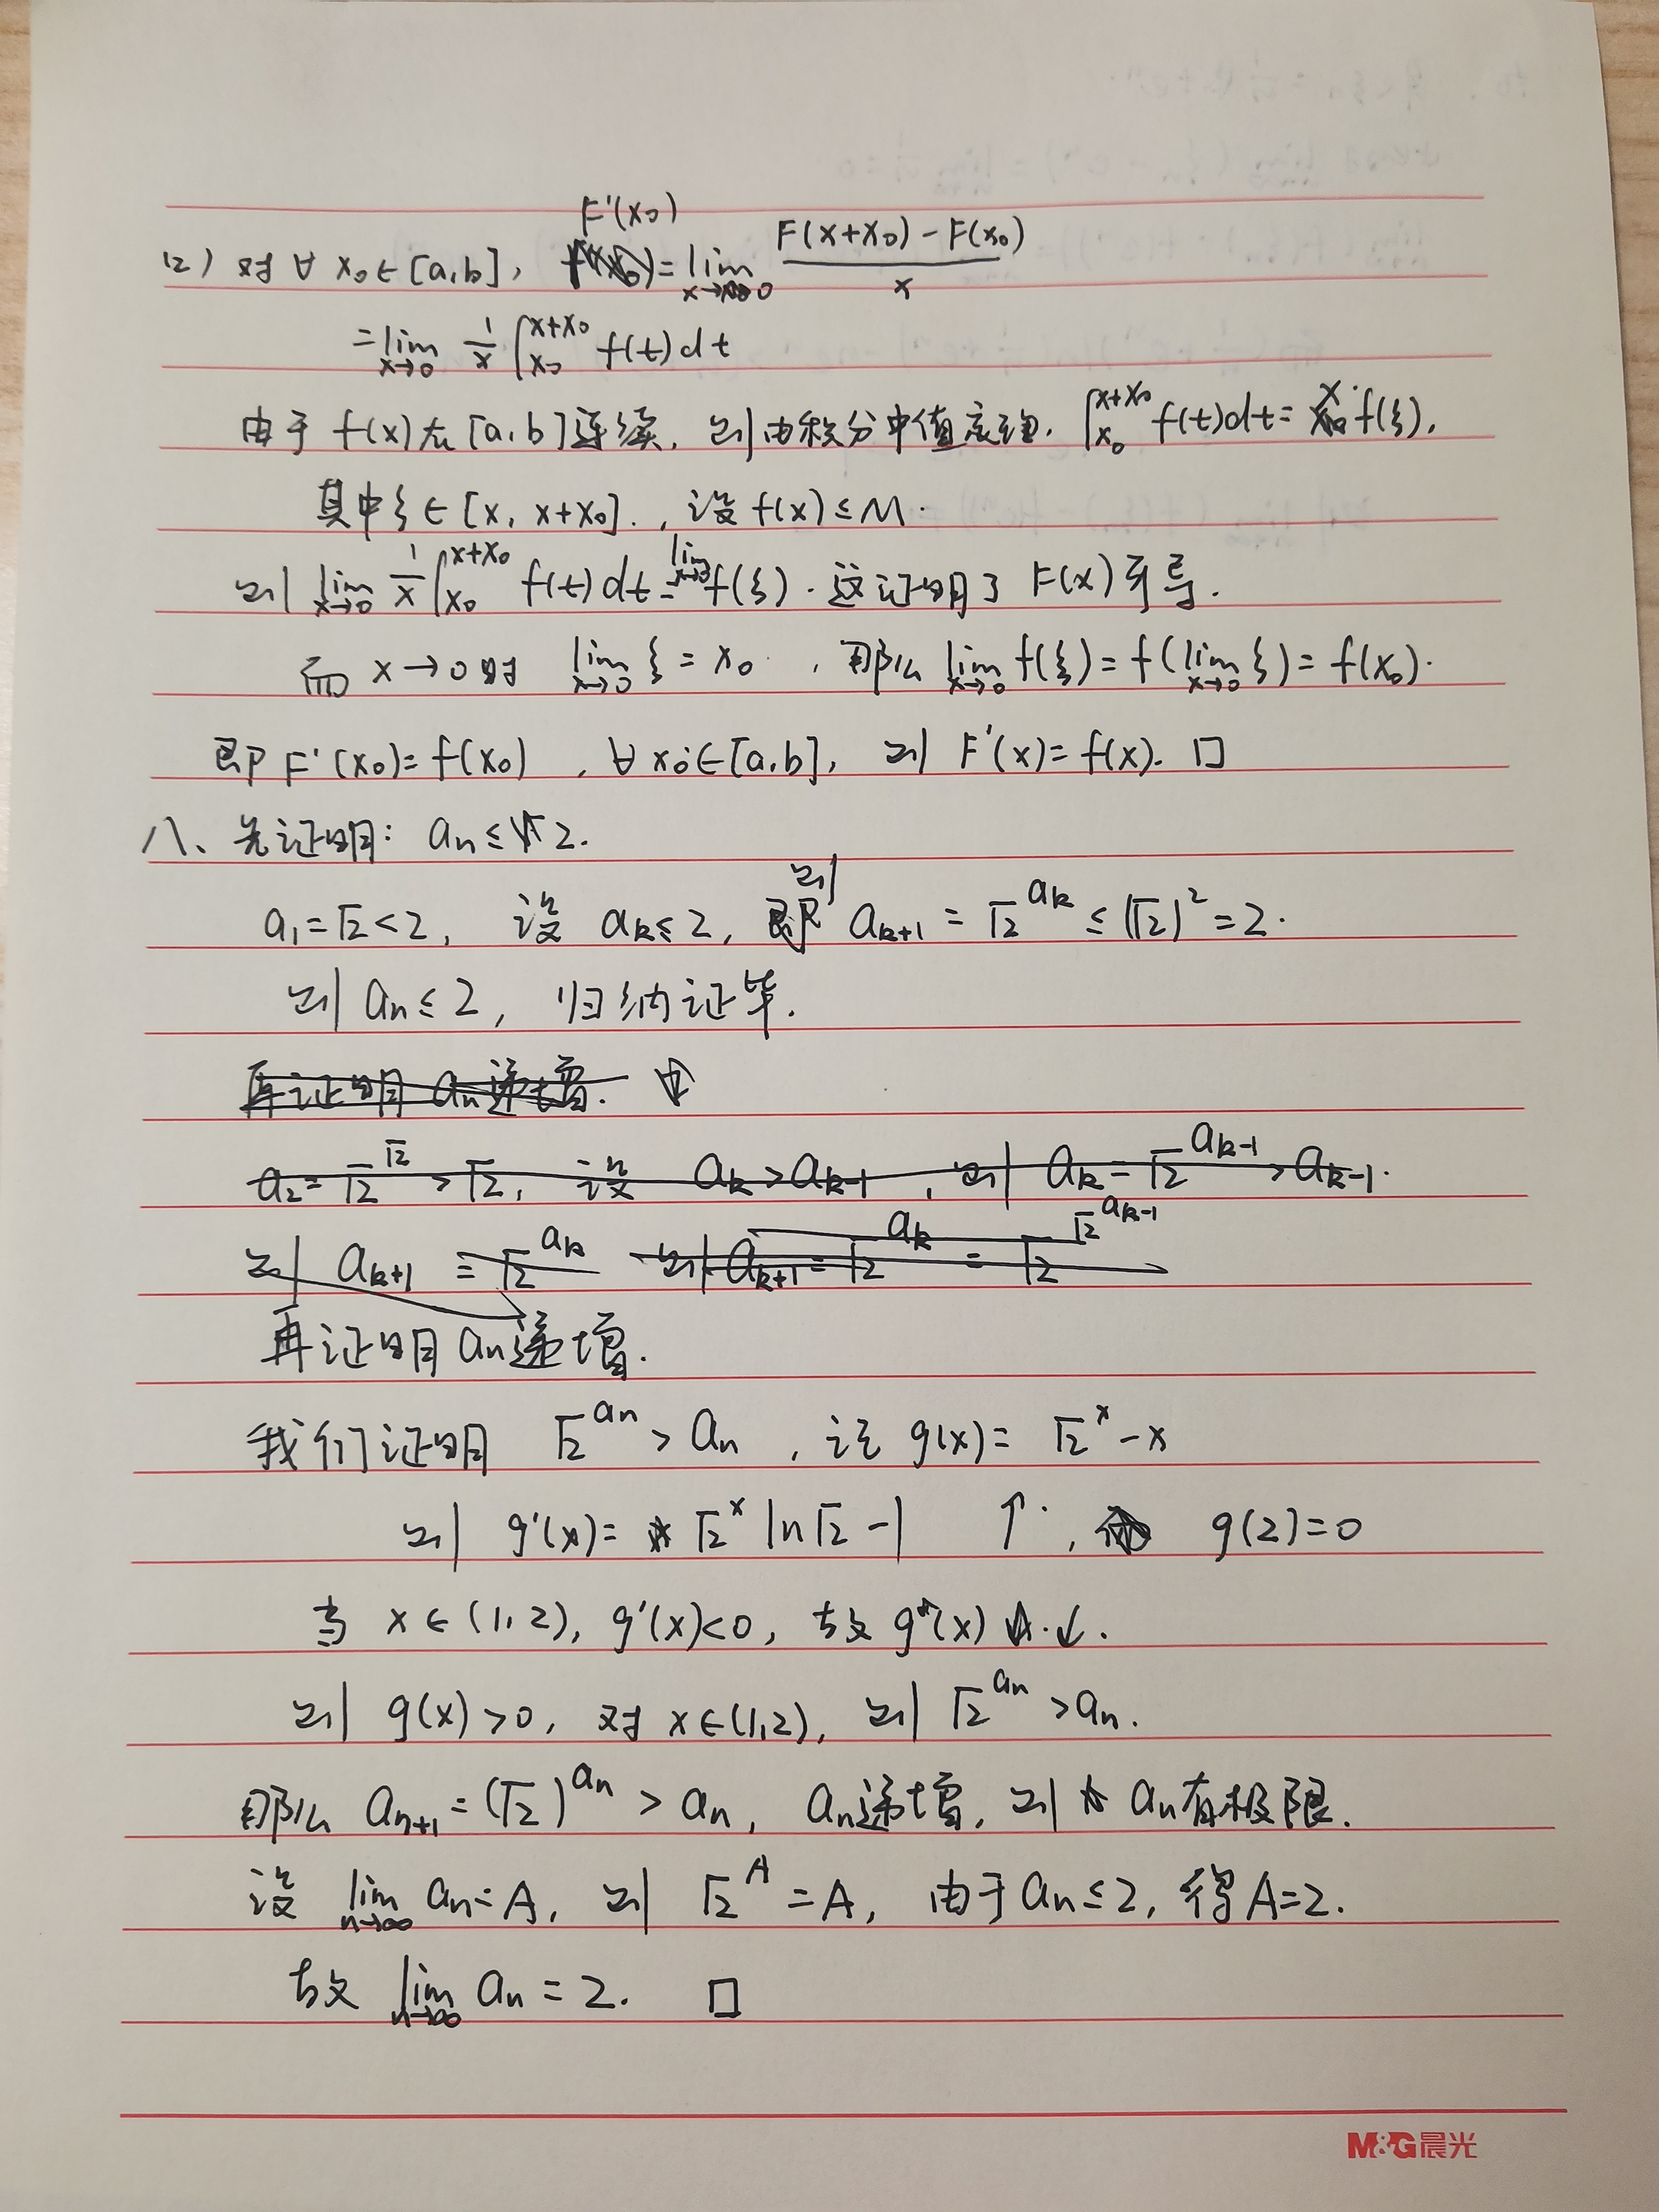 (2) 对 ∀ x₀∈[a,b], F'(x₀) = lim_{x→0} (F(x+x₀) - F(x₀))/x
= lim_{x→0} 1/x ∫_{x₀}^{x+x₀} f(t)dt
由于 f(x)在[a,b]连续, 则由积分中值定理. ∫_{x₀}^{x+x₀} f(t)dt = x·f(ξ),
其中ξ∈[x, x+x₀]., 设 f(x)≤M.
则 lim_{x→0} 1/x ∫_{x₀}^{x+x₀} f(t)dt = lim_{x→0} f(ξ). 这证明了 F(x)可导.
而 x→0时 lim_{x→0} ξ = x₀. , 那么 lim_{x→0} f(ξ) = f(lim_{x→0} ξ) = f(x₀).
即 F'(x₀)= f(x₀) , ∀ x₀∈[a,b], 则 F'(x)= f(x). □
八、先证明: aₙ ≤ 2.
a₁=√2<2, 设 aₖ≤2, 则 aₖ₊₁ = √2^{aₖ} ≤ (√2)² = 2.
则 aₙ≤2, 归纳证毕.
再证明 aₙ递增.
a₂=√2^{√2} >√2, 设 aₖ>aₖ₋₁ , 则 aₖ=√2^{aₖ₋₁} >aₖ₋₁.
则 aₖ₊₁ = √2^{aₖ} 则 aₖ₊₁=√2^{aₖ} = √2^{√2^{aₖ₋₁}}
再证明 aₙ递增.
我们证明 √2^{aₙ} > aₙ , 记 g(x)= √2^x - x
则 g'(x)= √2^x ln√2 -1 ↑. , g(2)=0
当 x∈(1,2), g'(x)<0, 故 g(x) ↓.
则 g(x) >0, 对 x∈(1,2), 则 √2^{aₙ} >aₙ.
那么 aₙ₊₁=(√2)^{aₙ} > aₙ, aₙ递增, 则 aₙ有极限.
设 lim_{n→∞} aₙ=A, 则 √2^A =A, 由于 aₙ≤2, 得A=2.
故 lim_{n→∞} aₙ = 2. □
M&G晨光